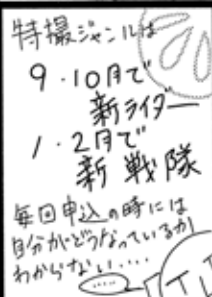 特撮ジャンルは
9・10月で
新ライダー
1・2月で
新戦隊
毎回申込の時には
自分がどうなっているか
わからない‥‥